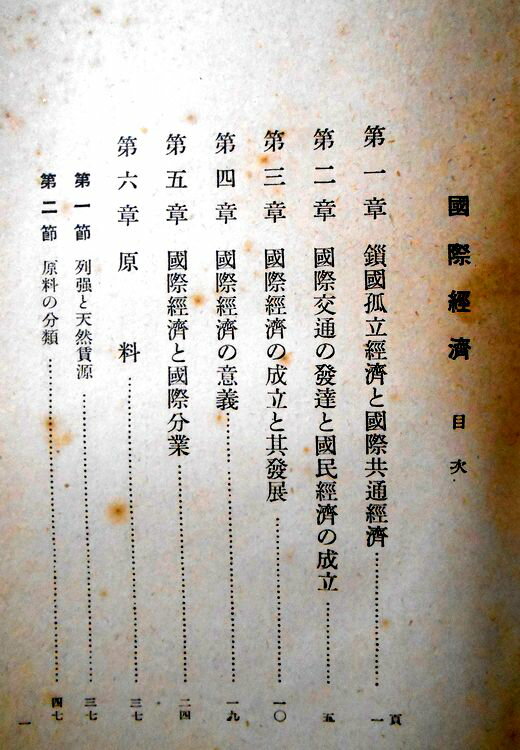 國際經濟 目次
頁
第一章 鎖國孤立經濟と國際共通經濟 一
第二章 國際交通の發達と國民經濟の成立 五
第三章 國際經濟の成立と其發展 一〇
第四章 國際經濟の意義 一九
第五章 國際經濟と國際分業 二四
第六章 原料 三七
第一節 列强と天然賃源 三七
第二節 原料の分類 四七
一